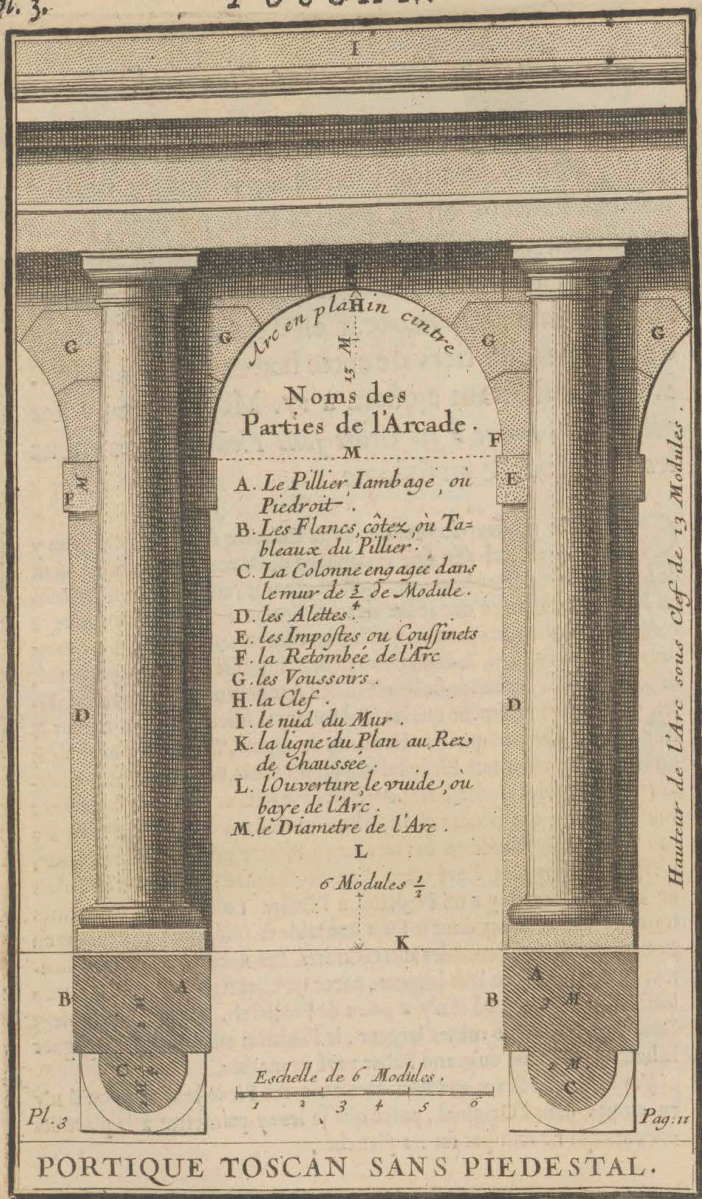 Pl. 3.
I
H
Arc en plain cintre.
13 M.
G
G
G
G
Noms des
Parties de l'Arcade.
M
F
E
F
M
A. Le Pillier, Iambage, où
Piedroit.
B. Les Flancs, côtez, où Ta=
bleaux du Pillier.
C. La Colonne engageé dans
le mur de 3/4 de Module.
D. les Alettes.
E. les Impostes ou Coussinets
F. la Retombée de l'Arc
G. les Voussoirs.
H. la Clef.
I. le nud du Mur.
K. la ligne du Plan au Rez
de Chaussée.
L. l'Ouverture, le vuide, où
baye de l'Arc.
M. le Diametre de l'Arc.
D
D
Hauteur de l'Arc sous Clef de 13 Modules.
L
6 Modules 1/2
K
B
A
B
A
3 M.
C
2 M.
C
Eschelle de 6 Modules.
1 2 3 4 5 6
Pl. 3
Pag: 11
PORTIQUE TOSCAN SANS PIEDESTAL.